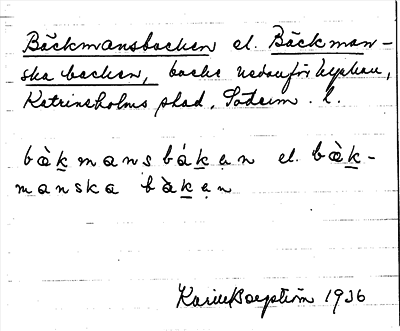 Bäckmansbacken el. Bäckman-
ska backen, backe nedanför kyrkan,
Katrineholms stad, Söderm. l.
bàk̲mansbák̲ạn el. bàk̲-
manska bàk̲ẹn
Karin Bergström 1936